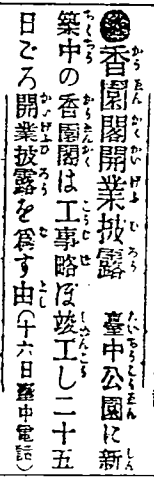 香園閣開業披露 臺中公園に新
築中の香園閣は工事略ぼ竣工し二十五
日ごろ開業披露を爲す由(十六日臺中電話)